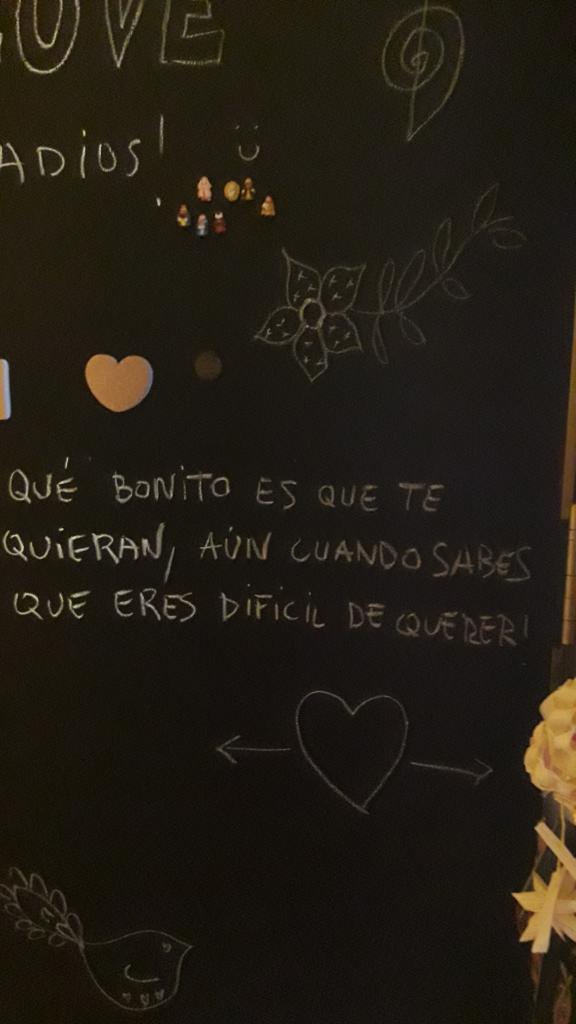 LOVE
ADIOS!
QUÉ BONITO ES QUE TE
QUIERAN, AÚN CUANDO SABES
QUE ERES DIFICIL DE QUERER!